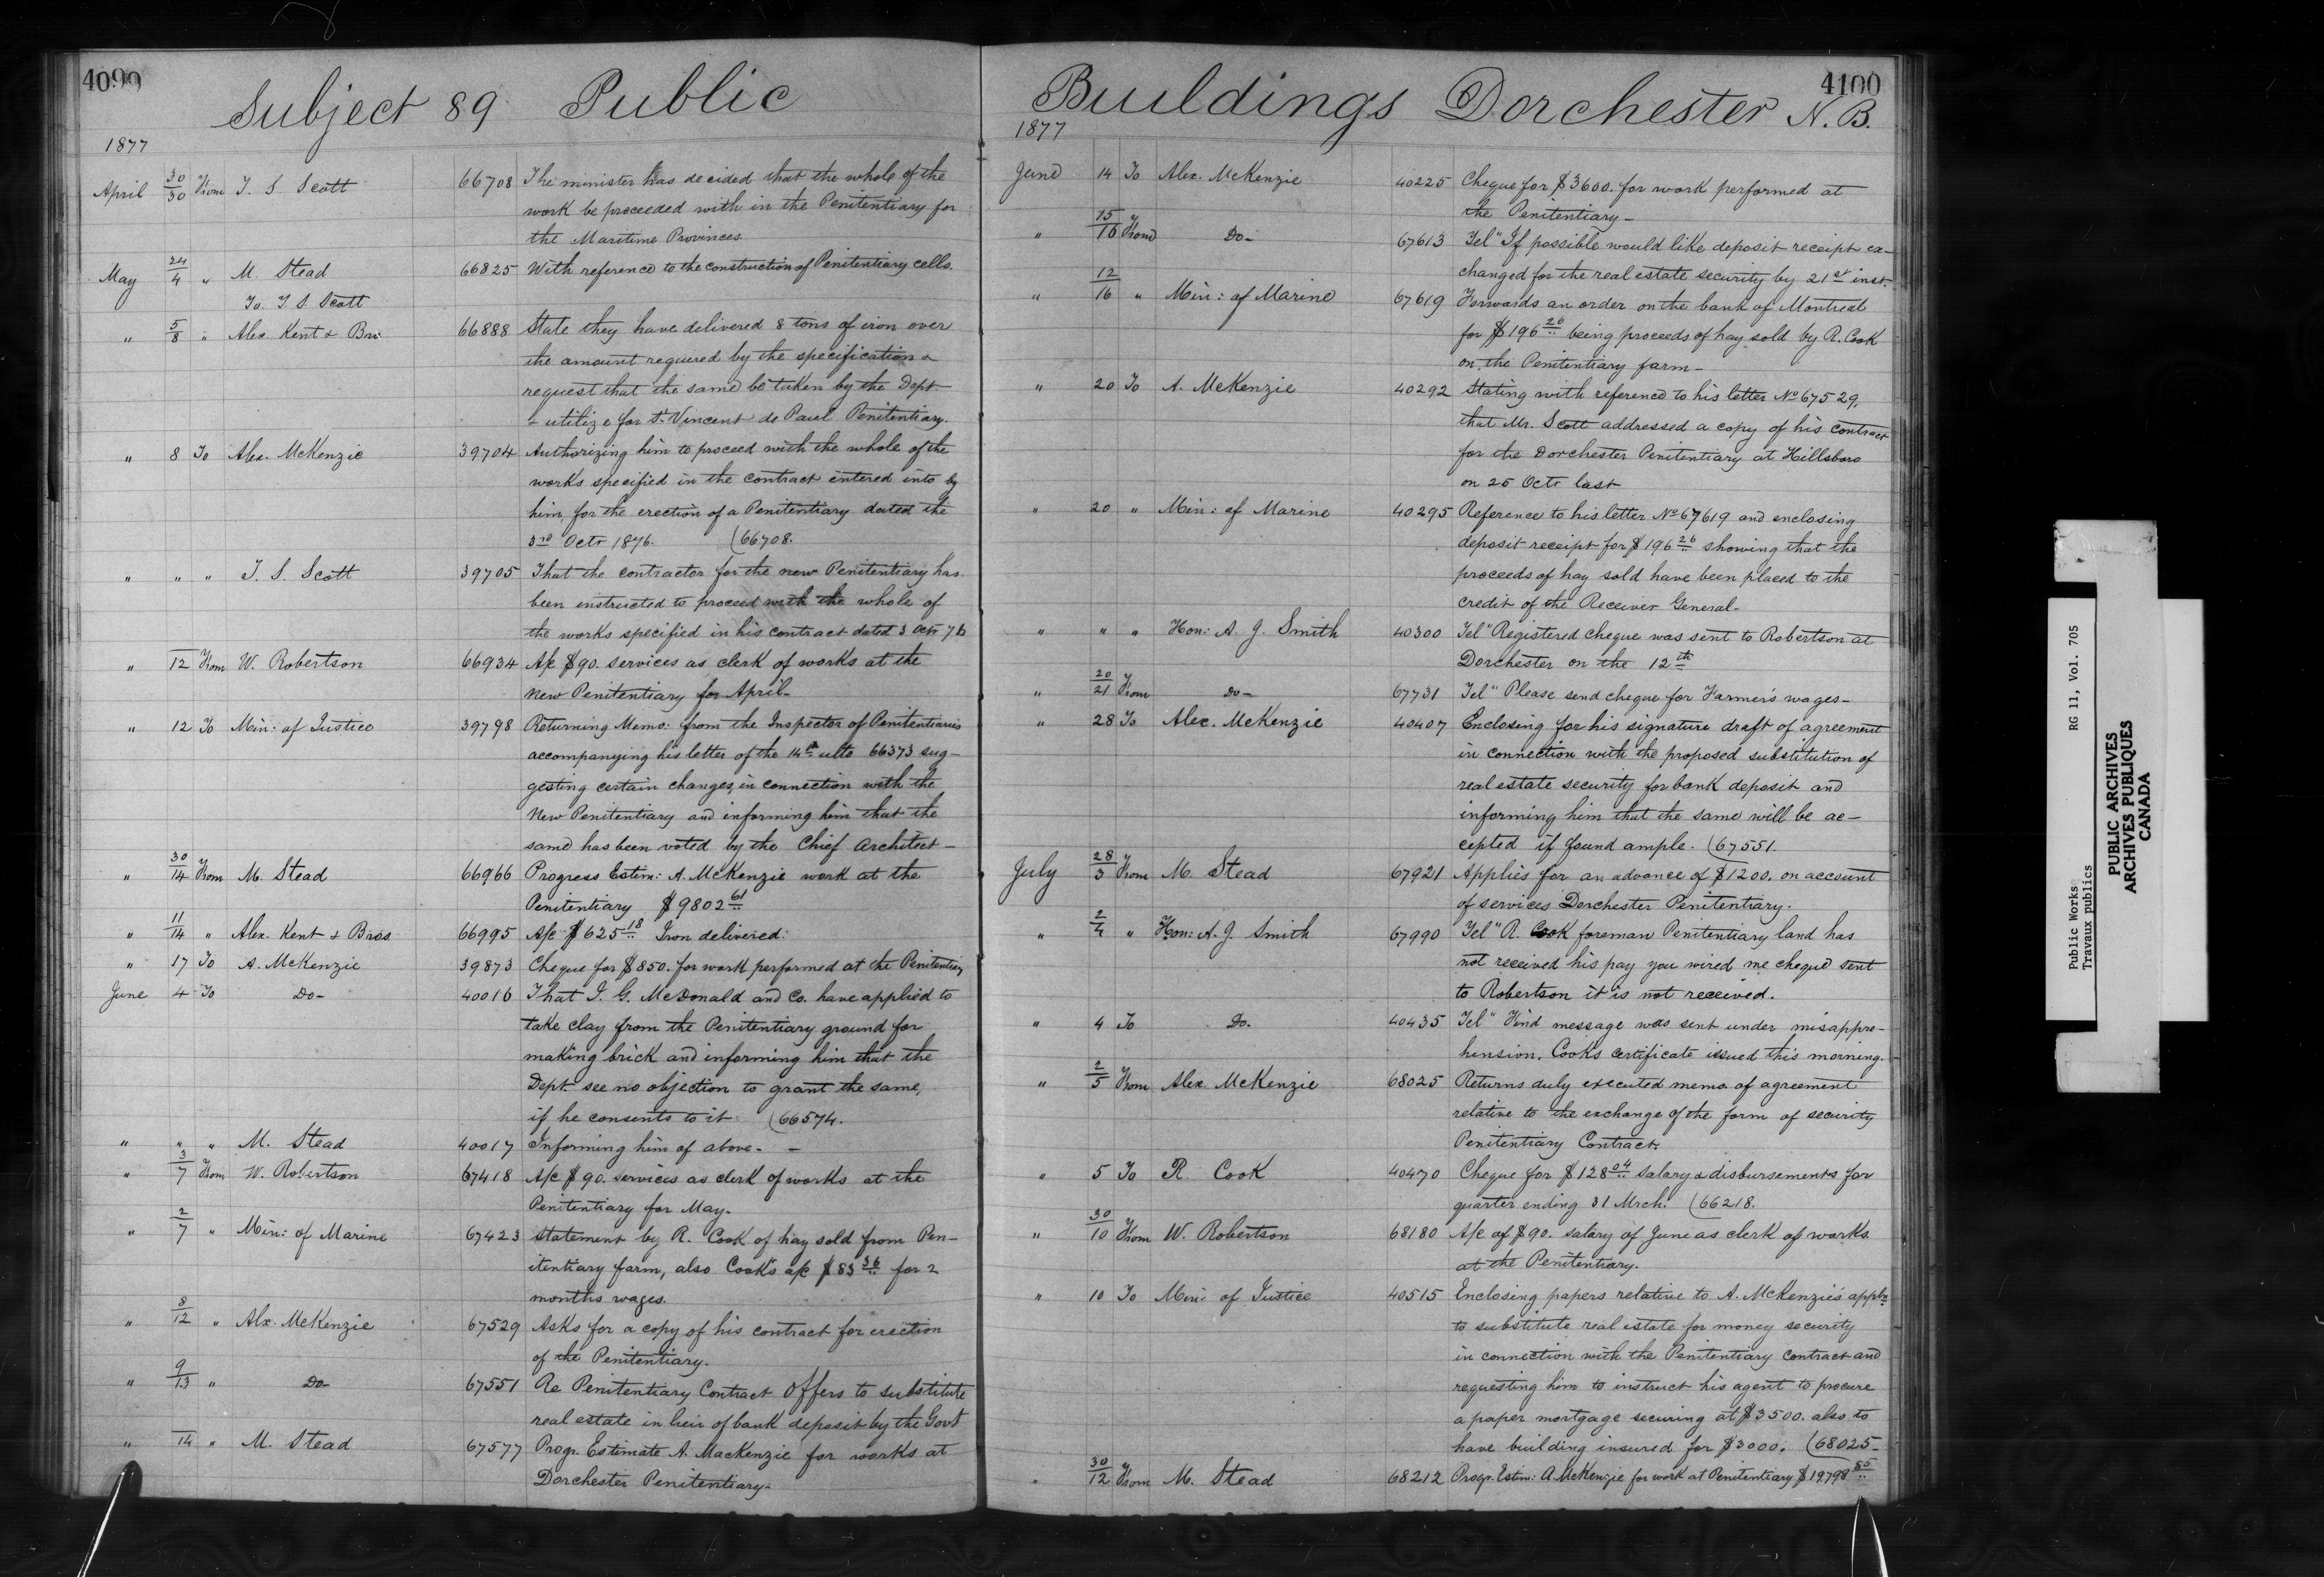 4099
Subject 89 Public
1877
April 30/30 From T. S. Scott 66708 The minister has decided that the whole of the
work be proceeded with in the Penitentiary for
the Maritime Provinces
May 24/4 " M. Stead 66825 With reference to the construction of Penitentiary cells.
To. T. S. Scott
" 5/8 " Alex. Kent & Bro: 66888 State they have delivered 8 tons of iron over
the amount required by the specification &
request that the same be taken by the Dept
& utilize for St. Vincent de Paul Penitentiary.
" 8 To Alex. McKenzie 39704 Authorizing him to proceed with the whole of the
works specified in the contract entered into by
him, for the erection of a Penitentiary dated the
3rd Octr 1876. (66708.
" " " T. S. Scott 39705 That the contractor for the new Penitentiary has
been instructed to proceed with the whole of
the works specified in his contract dated 3 Octr 76
" 12 From W. Robertson 66934 A/c $90. services as clerk of works at the
New Penitentiary for April-
" 12 To Min: of Justice 39798 Returning Memo: from the Inspector of Penitentiaries
accompanying his letter of the 14th ulto 66373 sug-
gesting certain changes, in connection with the
New Penitentiary and informing him that the
same has been voted by the Chief Architect-
" 30/14 From M. Stead 66966 Progress Estim: A. McKenzie work at the
Penitentiary $9802 61
" 11/14 " Alex. Kent & Bros 66995 A/c $625 18 Iron delivered.
" 17 To A. McKenzie 39873 Cheque for $850. for work performed at the Penitentiary
June 4 To Do- 40016 That J. G. McDonald and Co. have applied to
take clay from the Penitentiary ground for
making brick and informing him that the
Dept. see no objection to grant the same,
if he consents to it (66574.
" " " M. Stead 40017 Informing him of above. -
" 3/7 From W. Robertson 67418 A/c $90. services as clerk of works at the
Penitentiary for May.
" 2/7 " Min: of Marine 67423 Statement by R. Cook of hay sold from Pen-
itentiary farm, also Cook's a/c $83 36 for 2
months wages.
" 8/12 " Alx. McKenzie 67529 Asks for a copy of his contract for erection
of the Penitentiary.
" 9/13 " Do- 67551 Re Penitentiary Contract offers to substitute
real estate in lieu of bank deposit by the Govt
" 14 " M. Stead 67577 Progr. Estimate A. MacKenzie for works at
Dorchester Penitentiary-
4100
Buildings Dorchester N.B.
1877
June 14 To Alex. McKenzie 40225 Cheque for $3600. for work performed at
the Penitentiary-
" 15/16 From Do- 67613 Tel "If possible would like deposit receipt ex-
changed for the real estate security by 21st inst.
" 12/16 " Min: of Marine 67619 Forwards an order on the bank of Montreal
for $196 26 being proceeds of hay sold by R. Cook
on the Penitentiary farm-
" 20 To A. McKenzie 40292 Stating with reference to his letter No 67529,
that Mr. Scott addressed a copy of his contract
for the Dorchester Penitentiary at Hillsboro
on 25 Octr last
" 20 " Min: of Marine 40295 Reference to his letter No 67619 and enclosing
deposit receipt for $196 26 showing that the
proceeds of hay sold have been placed to the
credit of the Receiver General-
" " " Hon: A. J. Smith 40300 Tel "Registered cheque was sent to Robertson at
Dorchester on the 12th
" 20/21 From Do- 67731 Tel " Please send cheque for Farmer's wages-
" 28 To Alex. McKenzie 40407 Enclosing for his signature draft of agreement
in connection with the proposed substitution of
real estate security for bank deposit and
informing him that the same will be ac-
cepted if found ample. (67551.
July 28/3 From M. Stead 67921 Applies for an advance of $1200. on account
of services Dorchester Penitentiary.
" 2/4 " Hon: A. J. Smith 67990 Tel "R. Cook foreman Penitentiary land has
not received his pay you wired me cheque sent
to Robertson it is not received.
" 4 To Do. 40435 Tel " message was sent under misappre-
hension. Cook's certificate issued this morning.
" 2/5 From Alex. McKenzie 68025 Returns duly executed memo. of agreement
relative to the exchange of the form of security
Penitentiary Contract.
" 5 To R. Cook 40470 Cheque for $128 04 salary & disbursements for
quarter ending 31 Mrch. (66218.
" 30/10 From W. Robertson 68180 A/c of $90. salary of June as clerk of works
at the Penitentiary.
" 10 To Min: of Justice 40515 Enclosing papers relative to A. McKenzie's appln
to substitute real estate for money security
in connection with the Penitentiary contract and
requesting him to instruct his agent to procure
a paper mortgage securing at $3500. also to
have building insured for $3000. (68025-
" 30/12 From M. Stead 68212 Progr. Estim: A. McKenzie for work at Penitentiary $19798 85
Public Works RG 11, Vol. 705
Travaux publics
PUBLIC ARCHIVES
ARCHIVES PUBLIQUES
CANADA